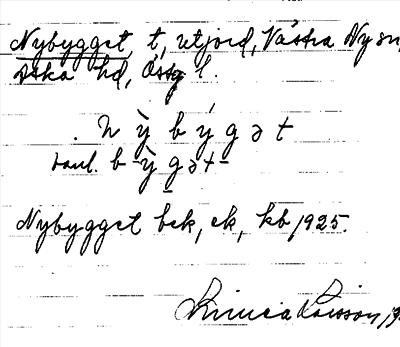 Nybygget, t, utjord, Västra Ny sn,
Aska hd, Östg l.
. n ỳ b ý g ə t
vanl. b-ỳ g ə t-
Nybygget bek, ek, kb 1925.
Linnea Larsson,